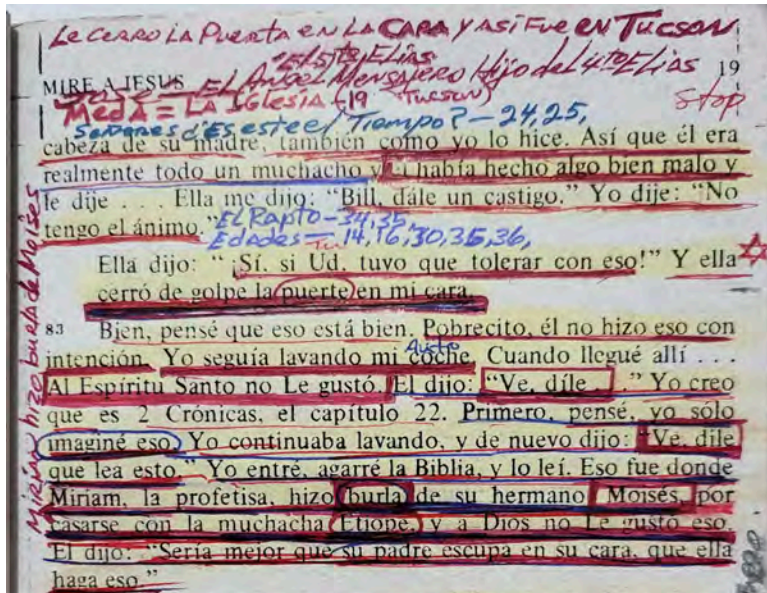 Le CERRO LA PUERTA EN LA CARA Y ASÍ FUE EN TUCSON
El 5to ELIAS
MIRE A JESUS EL ANGEL MENSAJERO Hijo del 4to ELIAS 19
MEDA = LA IGLESIA -19 Tucson) Stop
SEÑORES d'ES este el Tiempo? - 24, 25,
cabeza de su madre, también como yo lo hice. Así que él era
realmente todo un muchacho y él había hecho algo bien malo y
le dije . . . Ella me dijo: “Bill, dále un castigo.” Yo dije: “No
tengo el ánimo.” EL RAPTO - 34, 35,
EdAdes - 14, 16, 30, 35, 36,
Ella dijo: “¡Sí. si Ud. tuvo que tolerar con eso!” Y ella
cerró de golpe la puerte en mi cara.
83 Bien, pensé que eso está bien. Pobrecito, él no hizo eso con
Auto
intención. Yo seguía lavando mi coche. Cuando llegué allí . . .
Al Espíritu Santo no Le gustó. El dijo: “Ve, díle . .” Yo creo
que es 2 Crónicas, el capítulo 22. Primero, pensé, yo sólo
imaginé eso. Yo continuaba lavando, y de nuevo dijo: “Ve, dile
que lea esto.” Yo entré, agarré la Biblia, y lo leí. Eso fue donde
Miriam, la profetisa, hizo burla de su hermano Moisés, por
casarse con la muchacha Etiope, y a Dios no Le gustó eso.
El dijo: “Sería mejor que su padre escupa en su cara, que ella
haga eso.”
Miriam hizo burla de Moises